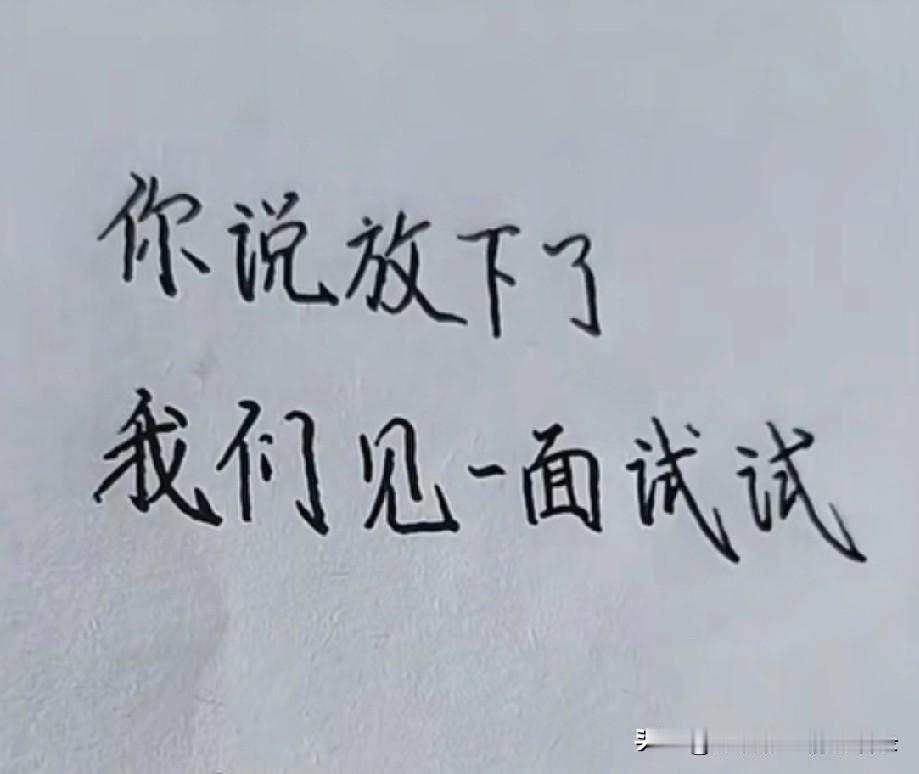 你说放下了
我们见一面试试